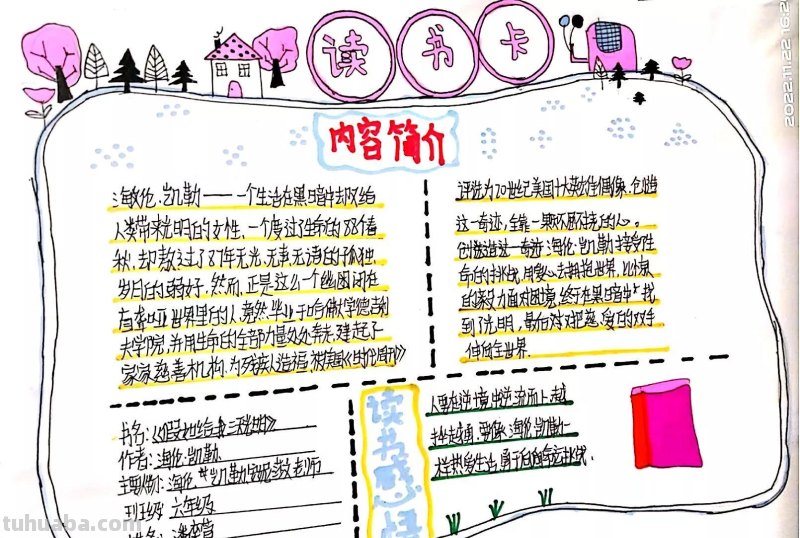 读书卡
2022.11.22
内容简介
海敏伦·凯勒——一个生活在黑暗中却又给
人类带来光明的女性，一个度过了生命的88个春
秋，却熬过了87年无光、无声、无语的孤独
岁月的弱
然而，正是这么一个幽闭在
盲聋哑世界里的人，竟然毕业于哈佛大学德吉利
夫学院，并用生命的全部力量处处奔走，建起了
家家慈善机构，为残疾人造福，被美国《时代周刊》
评选为20世纪美国十大英雄偶像。创造
这一奇迹，全靠一颗不屈不挠的心。
创造这一奇迹，海伦·凯勒接受生
命的挑战，用爱心去拥抱世界，以惊人
的毅力面对困境，终于在黑暗中找
到了光明，最后
把慈爱的双手
伸向全世界。
书名：《假如给我三天光明》
作者：海伦·凯勒
主要人物：海伦·凯勒
老师
班级：六年级
读书感悟
人要在逆境中逆流而上，越
挫越勇，要像海伦·凯勒一
样热爱生活，勇于向命运挑战。
tuhuaba.com